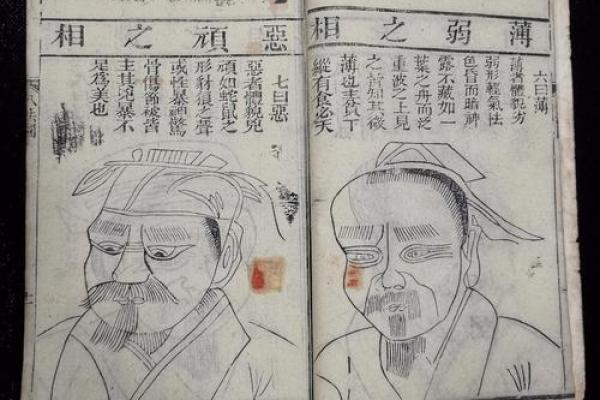 薄弱之相
六曰薄
薄者體貌劣
弱形輕氣怯
色昏而暗神
露不藏如一
葉之舟而泛
重波之上見
之皆知其微
薄也主貧下
縱有食必夭
惡頑之相
七曰惡
惡者體貌兇
頑如蛇鼠之
形豺狼之聲
或性暴神驚
骨傷節破皆
主其兇暴不
足爲美也